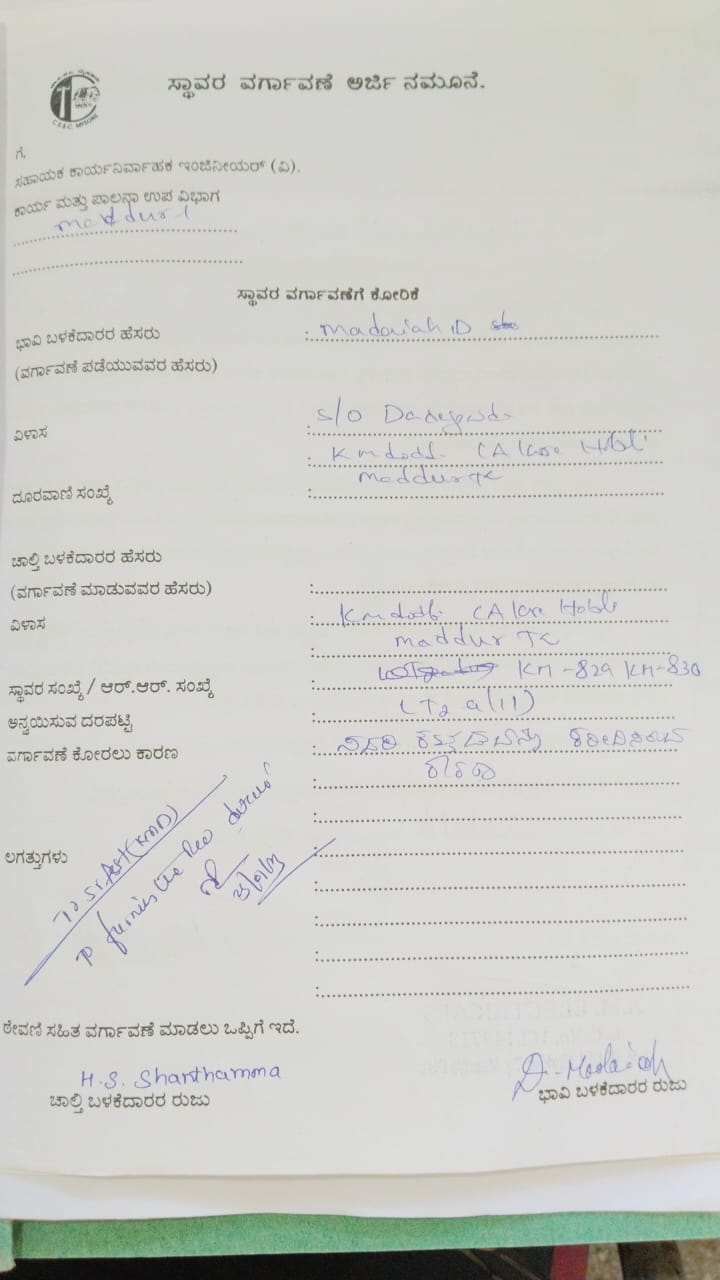 C.E.S.C. MYSORE
ಸ್ಥಾವರ ವರ್ಗಾವಣೆ ಅರ್ಜಿ ನಮೂನೆ.
ಗೆ,
ಸಹಾಯಕ ಕಾರ್ಯನಿರ್ವಾಹಕ ಇಂಜಿನೀಯರ್ (ವಿ),
ಕಾರ್ಯ ಮತ್ತು ಪಾಲನಾ ಉಪ ವಿಭಾಗ
maddur
ಸ್ಥಾವರ ವರ್ಗಾವಣೆಗೆ ಕೋರಿಕೆ
ಭಾವಿ ಬಳಕೆದಾರರ ಹೆಸರು : Madaiah D
(ವರ್ಗಾವಣೆ ಪಡೆಯುವವರ ಹೆಸರು)
ವಿಳಾಸ : S/o
: Kmdoddi CA Kere Hobli
ದೂರವಾಣಿ ಸಂಖ್ಯೆ : Maddur TK
ಚಾಲ್ತಿ ಬಳಕೆದಾರರ ಹೆಸರು
(ವರ್ಗಾವಣೆ ಮಾಡುವವರ ಹೆಸರು) :
ವಿಳಾಸ : Kmdoddi CA Kere Hobli
: maddur TK
ಸ್ಥಾವರ ಸಂಖ್ಯೆ / ಆರ್.ಆರ್. ಸಂಖ್ಯೆ : KM-829 KM-830
ಅನ್ವಯಿಸುವ ದರಪಟ್ಟಿ : LT2 a(ii)
ವರ್ಗಾವಣೆ ಕೋರಲು ಕಾರಣ :
ಲಗತ್ತುಗಳು
To Sr. Asst (KMD)
To furnish the
ಠೇವಣಿ ಸಹಿತ ವರ್ಗಾವಣೆ ಮಾಡಲು ಒಪ್ಪಿಗೆ ಇದೆ.
H.S. Shanthamma
D. Madaiah
ಚಾಲ್ತಿ ಬಳಕೆದಾರರ ರುಜು
ಭಾವಿ ಬಳಕೆದಾರರ ರುಜು